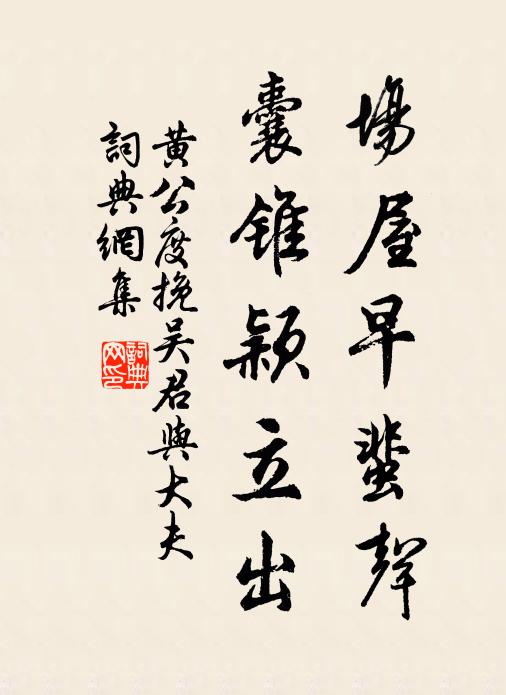 場屋早蜚聲
囊錐穎立出
黃公度挽吳君與大夫
詞典網集
詞典網印